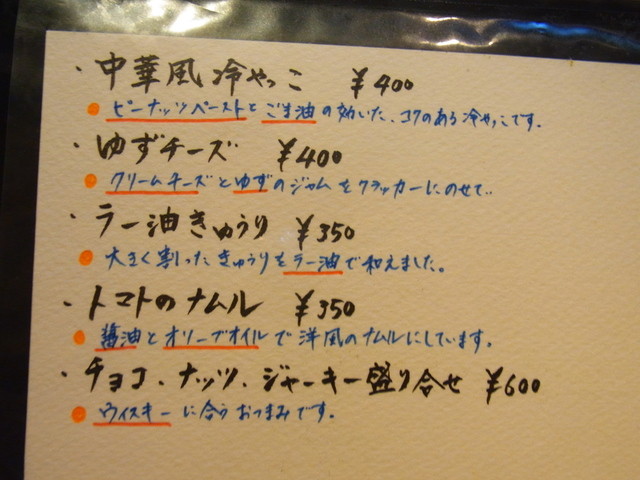 ・中華風冷やっこ ¥400
ピーナッツペーストとごま油の効いた、コクのある冷やっこです。
・ゆずチーズ ¥400
クリームチーズとゆずのジャムをクラッカーにのせて..
・ラー油きゅうり ¥350
大きく割ったきゅうりをラー油で和えました。
・トマトのナムル ¥350
醤油とオリーブオイルで洋風のナムルにしています。
・チョコ、ナッツ、ジャーキー盛り合せ ¥600
ウィスキーに合うおつまみです。